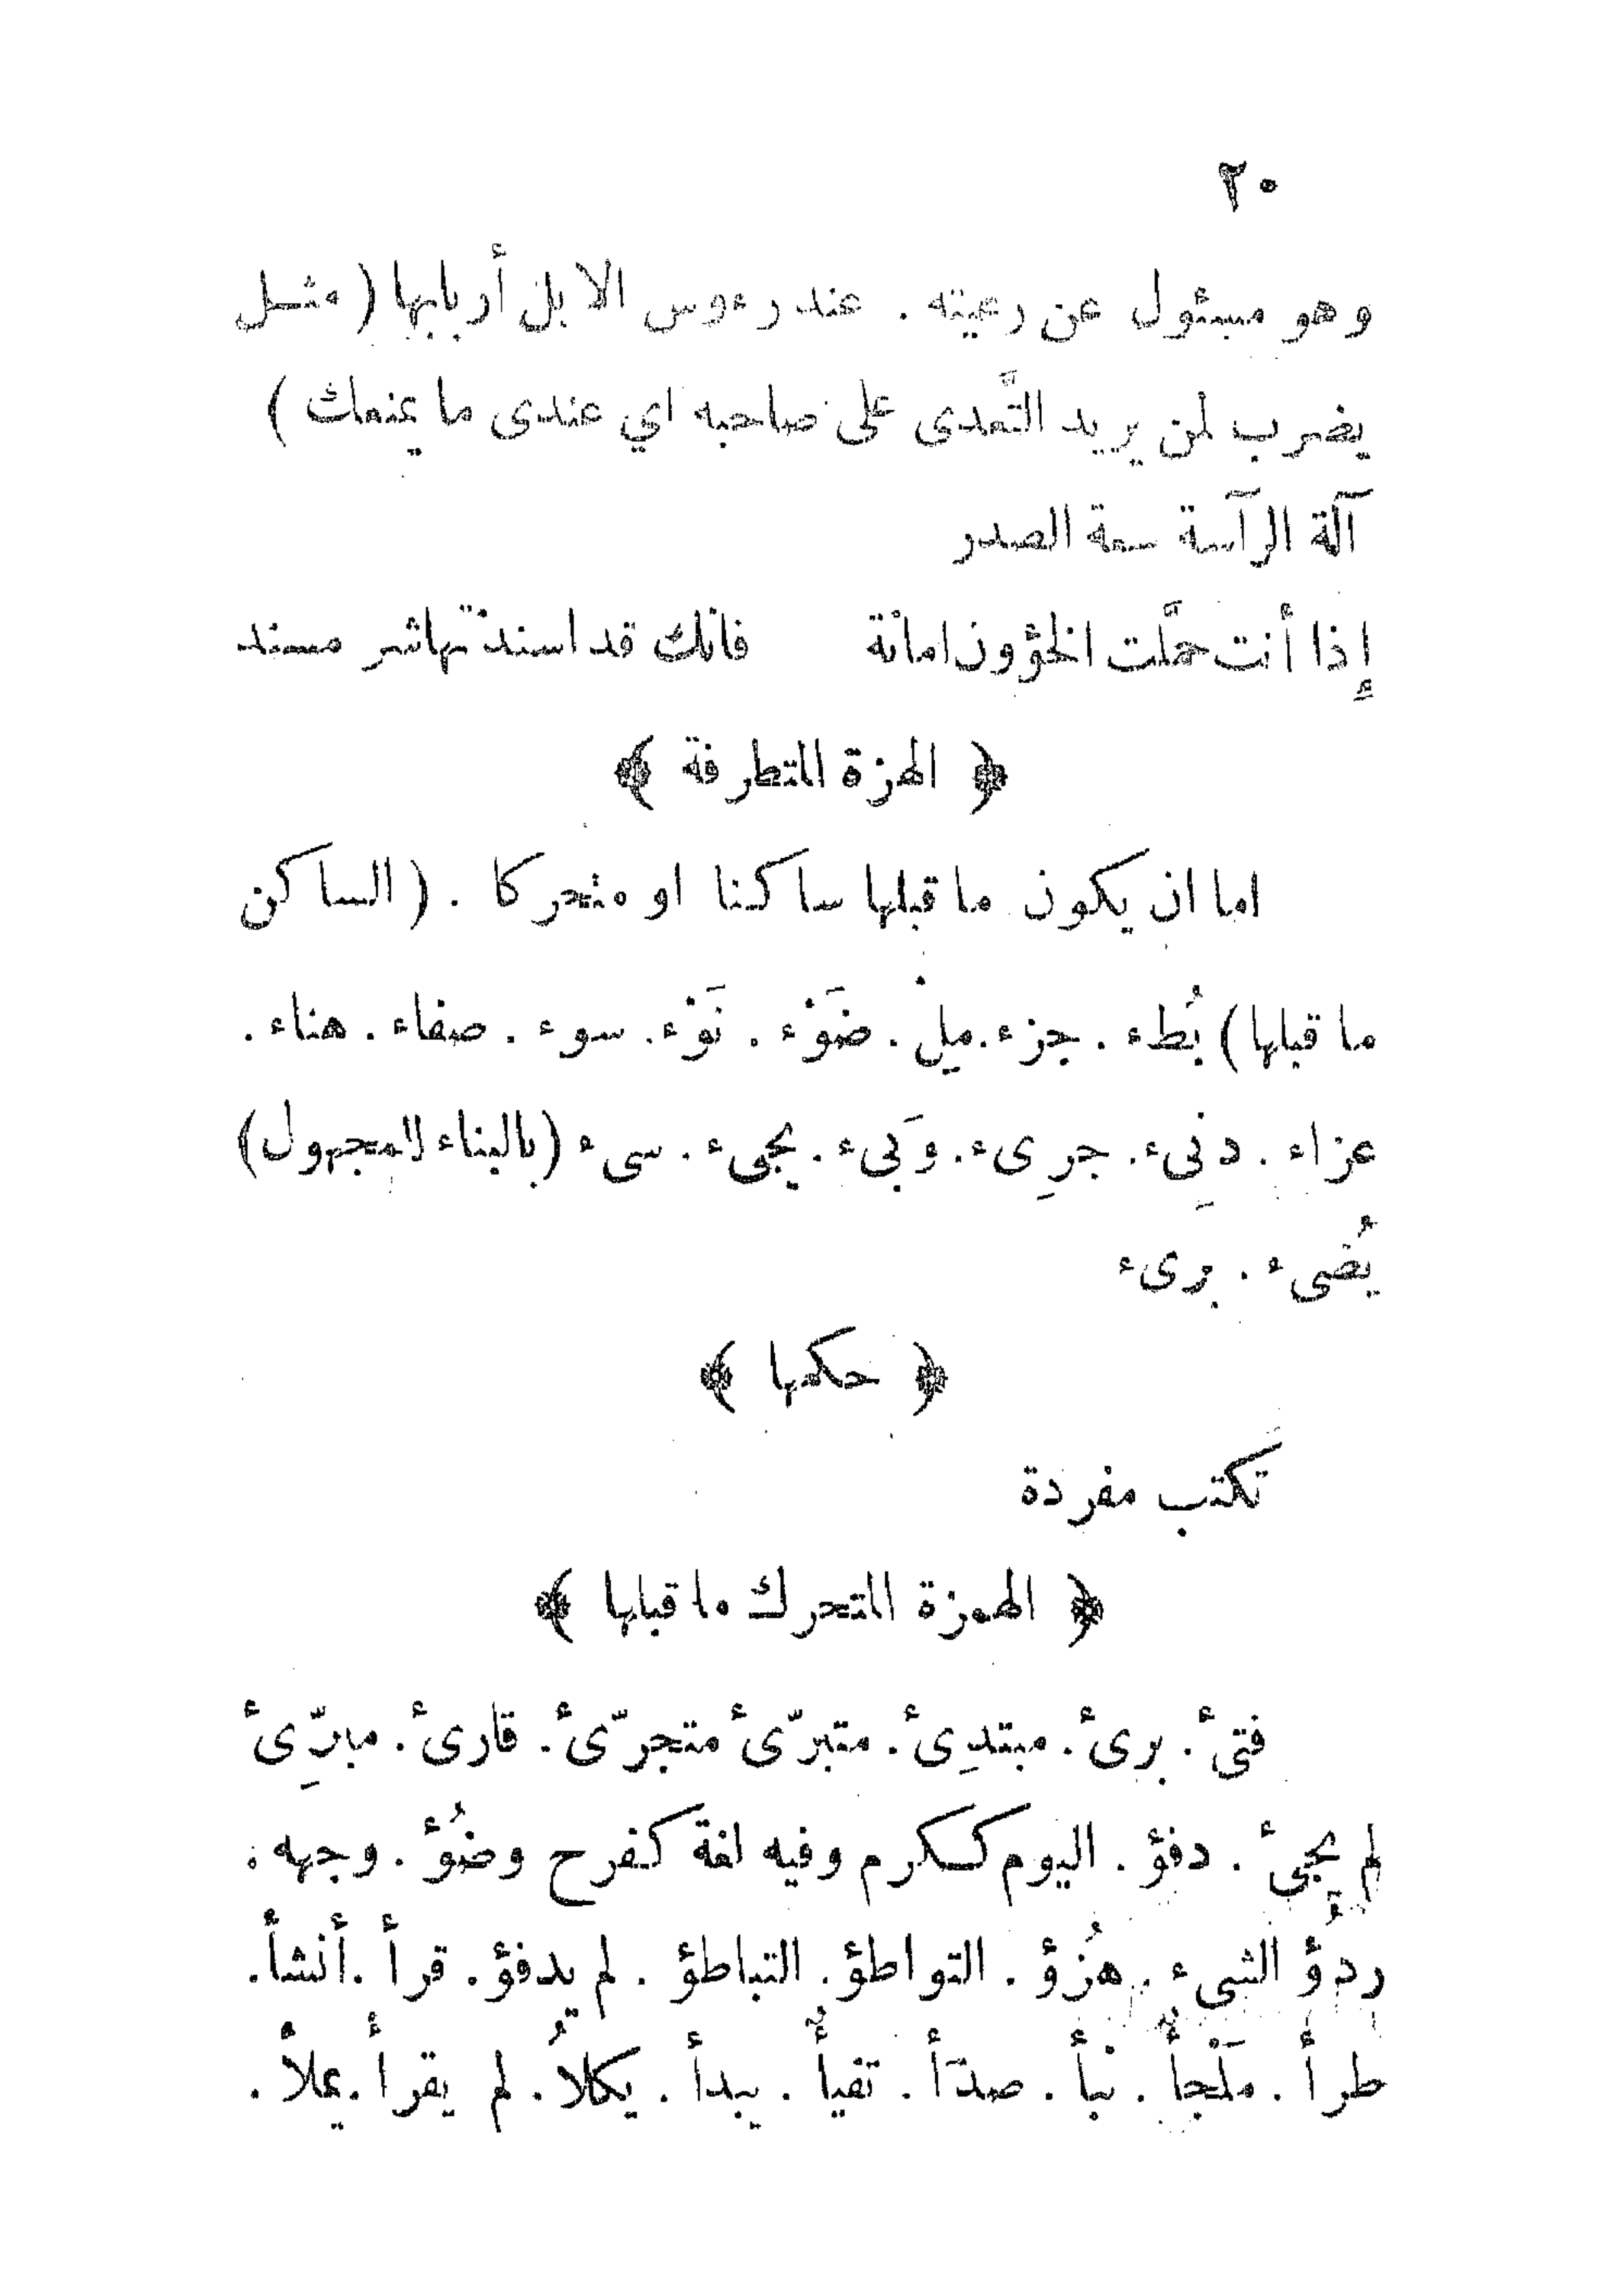 ٢٠
وهو مسئول عن رعيته . عند رءوس الابل أربابها ( مثل
يضرب لمن يريد التَّعدى على صاحبه اي عندى ما يمنعك )
آلة الرآسة سعة الصدر
إذا أنت حمَّلت الخؤون امانة فانك قد اسندتها شر مسند
﴿ الهمزة المتطرفة ﴾
اما ان يكون ما قبلها ساكنا او متحركا . ( الساكن
ما قبلها ) بُطء . جزء . ملْ . ضَوْء . نَوْء . سوء . صفاء . هناء .
عزاء . دنِىء . جرِىء . وَبىء . يجىء . سىء ( بالبناء للمجهول )
يُضىء . برىء
﴿ حكمها ﴾
تكتب مفردة
﴿ الهمزة المتحرك ما قبلها ﴾
فتئ . برئ . مبتدِئ . متبرّئ متجرّئ . قارئ . مبرِّئ
لم يجئ . دفؤ . اليوم ككرم وفيه لغة كفرح وضُؤ . وجهه .
ردُؤ الشىء . هُزُؤ . التواطؤ . التباطؤ . لم يدفؤ . قرأ . أنشأ .
طرأ . مَلْجأ . نبأ . صدَأ . تفيأ . يبدأ . يكلأُ . لم يقرأ . يملأ .